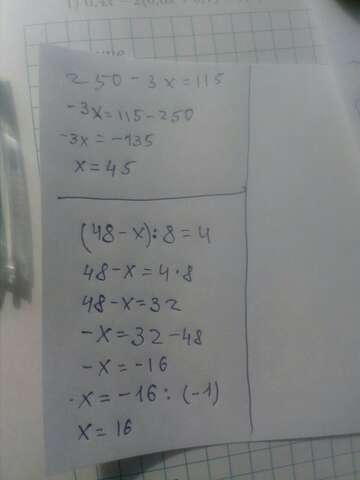 250 - 3x = 115
-3x = 115 - 250
-3x = -135
x = 45
(48 - x) : 8 = 4
48 - x = 4 · 8
48 - x = 32
-x = 32 - 48
-x = -16
-x = -16 : (-1)
x = 16